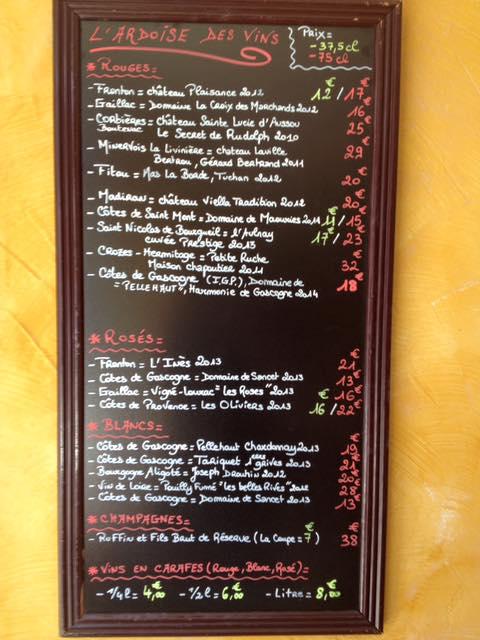 L'ARDOISE DES VINS
PRIX=
- 37,5 cl
- 75 cl
* ROUGES=
- Fronton = château Plaisance 2012 12€/17€
- Gaillac = Domaine La Croix des Marchands 2012 16€
- CORBIÈRES = château Sainte Lucie d'Aussou
Boutenac Le Secret de Rudolph 2010 25€
- MINERVOIS La Livinière = chateau Laville
Bertrou, Gérard Bertrand 2011 29€
- Fitou = Mas La Borde, Tuchan 2012 20€
- Madiran = château Viella Tradition 2012 20€
- Côtes de Saint Mont = Domaine de Maouries 2011 11€/15€
- Saint Nicolas de Bourgueil = l'Aulnay
cuvée Prestige 2013 17€/23€
- CROZES - Hermitage = Petite Ruche
Maison chapoutier 2011 32€
- Côtes de Gascogne (I.G.P.), Domaine de
"PELLEHAUT", Harmonie de Gascogne 2014 18€
* ROSÉS=
- Fronton = L'Inès 2013 21€
- Côtes de Gascogne = Domaine de Sancet 2013 13€
- Gaillac = Vigné-Lourac "Les Roses" 2013 16€
- Côtes de Provence = Les Oliviers 2013 16€/22€
* BLANCS=
- Côtes de Gascogne = Pellehaut Chardonnay 2013 19€
- Côtes de Gascogne = TARIQUET 1ères grives 2013 21€
- Bourgogne Aligoté = Joseph Drouhin 2012 20€
- Vin de Loire = Pouilly Fumé "Les belles Rives" 2012 28€
- Côtes de Gascogne = Domaine de Sancet 2013 13€
* CHAMPAGNES=
- ROFFIN et Fils Brut de Réserve (La Coupe = 7€) 38€
* VINS EN CARAFES (Rouge, Blanc, Rosé)=
- 1/4 l = 4,00€ - 1/2 l = 6,00€ - Litre = 8,00€